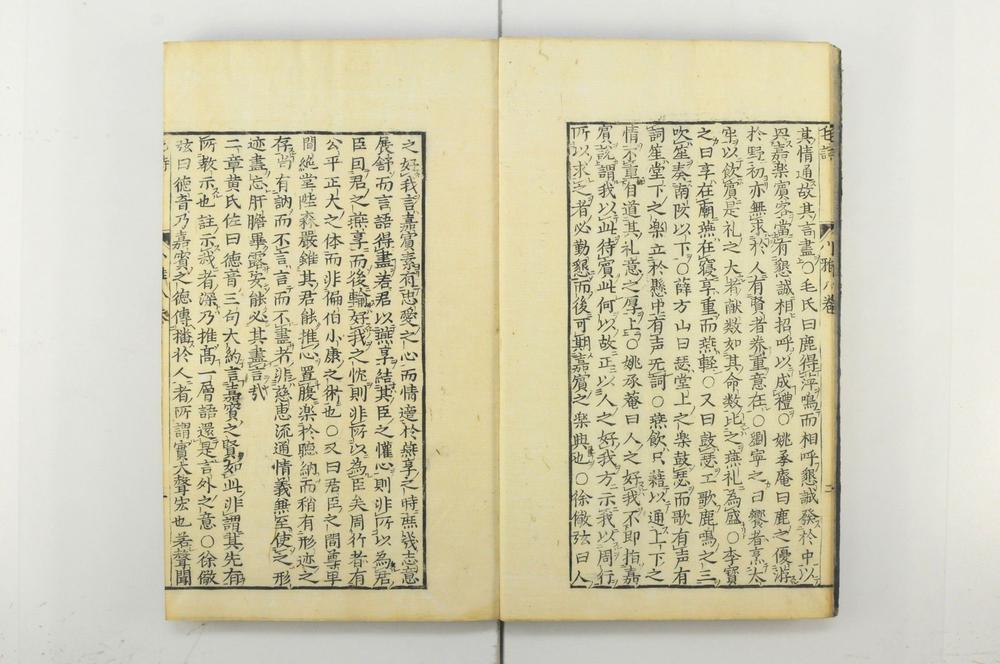 毛詩 小雅八卷 二
其情通故其言盡〇毛氏曰鹿得萍鳴而相呼懇誠發於中以
興嘉楽賓客當有懇誠相招呼以成禮〇姚承庵曰鹿之優游
於野初亦無求於人有賢者券重意在〇劉寧之曰饗者烹太
牢以飲賓是礼之大者献数如其命数比之燕礼為盛〇李寶
之曰享在廟燕在寝享重而燕輕〇又曰鼓瑟工歌鹿鳴之三
吹笙奏南陔以下〇薛方山曰瑟堂上之楽鼓瑟而歌有声有
詞笙堂下之楽立於懸中有声无詞〇燕飲只藉以通上下之
情不重有道其礼意之厚上〇姚承菴曰人之好我不即指嘉
賓說謂我以此待賓此何以故正以人之好我方示我以周行
所以求之者必勤懇而後可期嘉賓之楽與也〇徐儆弦曰人
之好我言嘉賓素有忠愛之心而情達於燕享之時庶幾志意
展舒而言語得盡若君以讌享結其臣之懽心則非所以為君
臣因君之燕享而後輸好我之忱則非所以為臣矣周行者有
公平正大之体而非偏伯小康之術也〇又曰君臣之間尊卑
間絶堂陛森嚴雖其君能推心置腹楽於聴納而稍有形迹之
存尚有訥而不言言而不盡者非慈恵流通情義無至使之形
迹盡忘肝膽畢露安能必其盡言哉
二章黄氏佐曰徳音三句大約言嘉賓之賢如此非謂其先有
所教示也註示我者深乃推髙一層語還是言外之意〇徐儆
弦曰徳音乃嘉賓之徳傳播於人者所謂實大聲宏也若聲聞